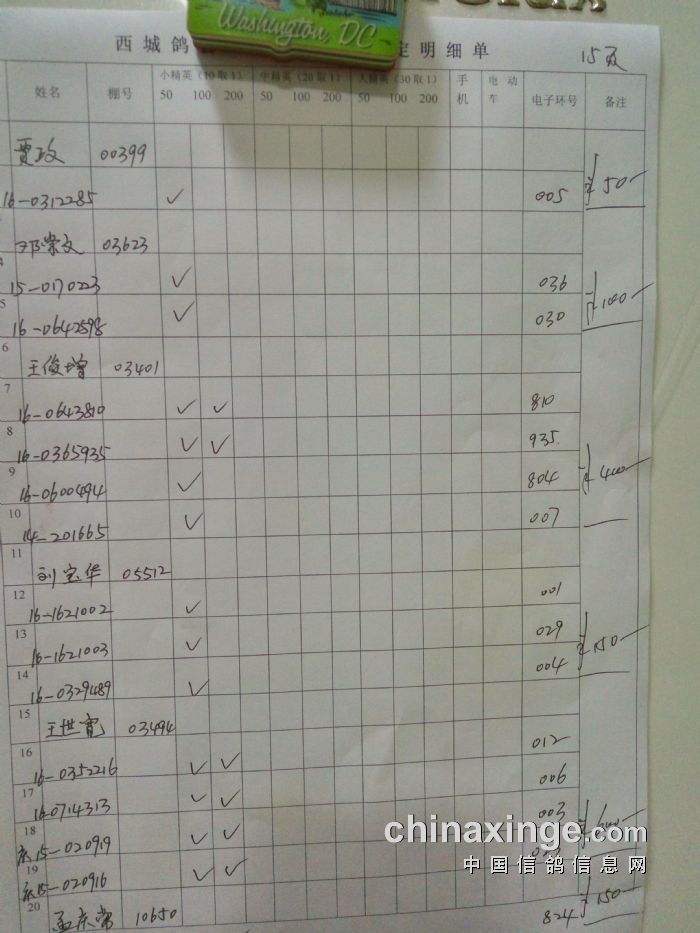 Washington, DC
西城鸽 定明细单 15页
姓名 棚号 小精英（10取1） 中精英（20取1） 大精英（30取1） 手机 电动车 电子环号 备注
50 100 200 50 100 200 50 100 200
贾政 00399
16-0312285 ✓ 005 50
邓崇文 03623
4 15-0170223 ✓ 036
5 16-0642598 ✓ 030 100
6 王俊增 03401
7 16-0643810 ✓ ✓ 810
8 16-0365935 ✓ ✓ 935.
9 16-0600494 ✓ 804 400
10 14-201665 ✓ 007
11 刘宝华 05512
12 16-1621002 ✓ 001
13 16-1621003 ✓ 029 150
14 16-0329489 ✓ 004
15 王世宽 03494
16 16-0352216 ✓ ✓ 012
17 16-0714313 ✓ ✓ 006
18 15-020919 ✓ ✓ 003 600
19 15-020916 ✓ ✓
20 孟庆常 10650 824 150
chinaxinge.com
中国信鸽信息网